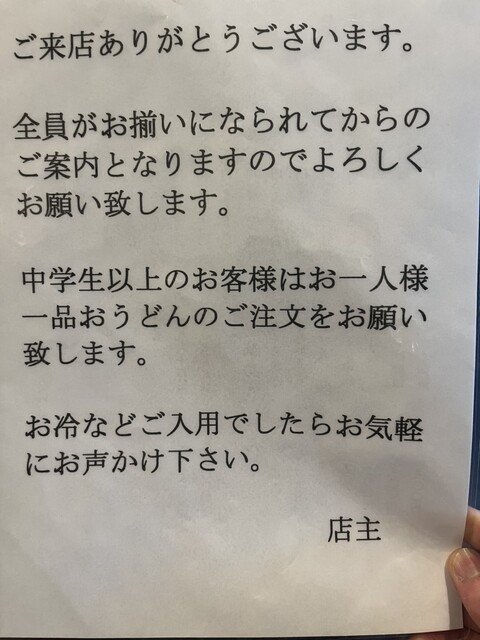 ご来店ありがとうございます。
全員がお揃いになられてからの
ご案内となりますのでよろしく
お願い致します。
中学生以上のお客様はお一人様
一品おうどんのご注文をお願い
致します。
お冷などご入用でしたらお気軽
にお声かけ下さい。
店主